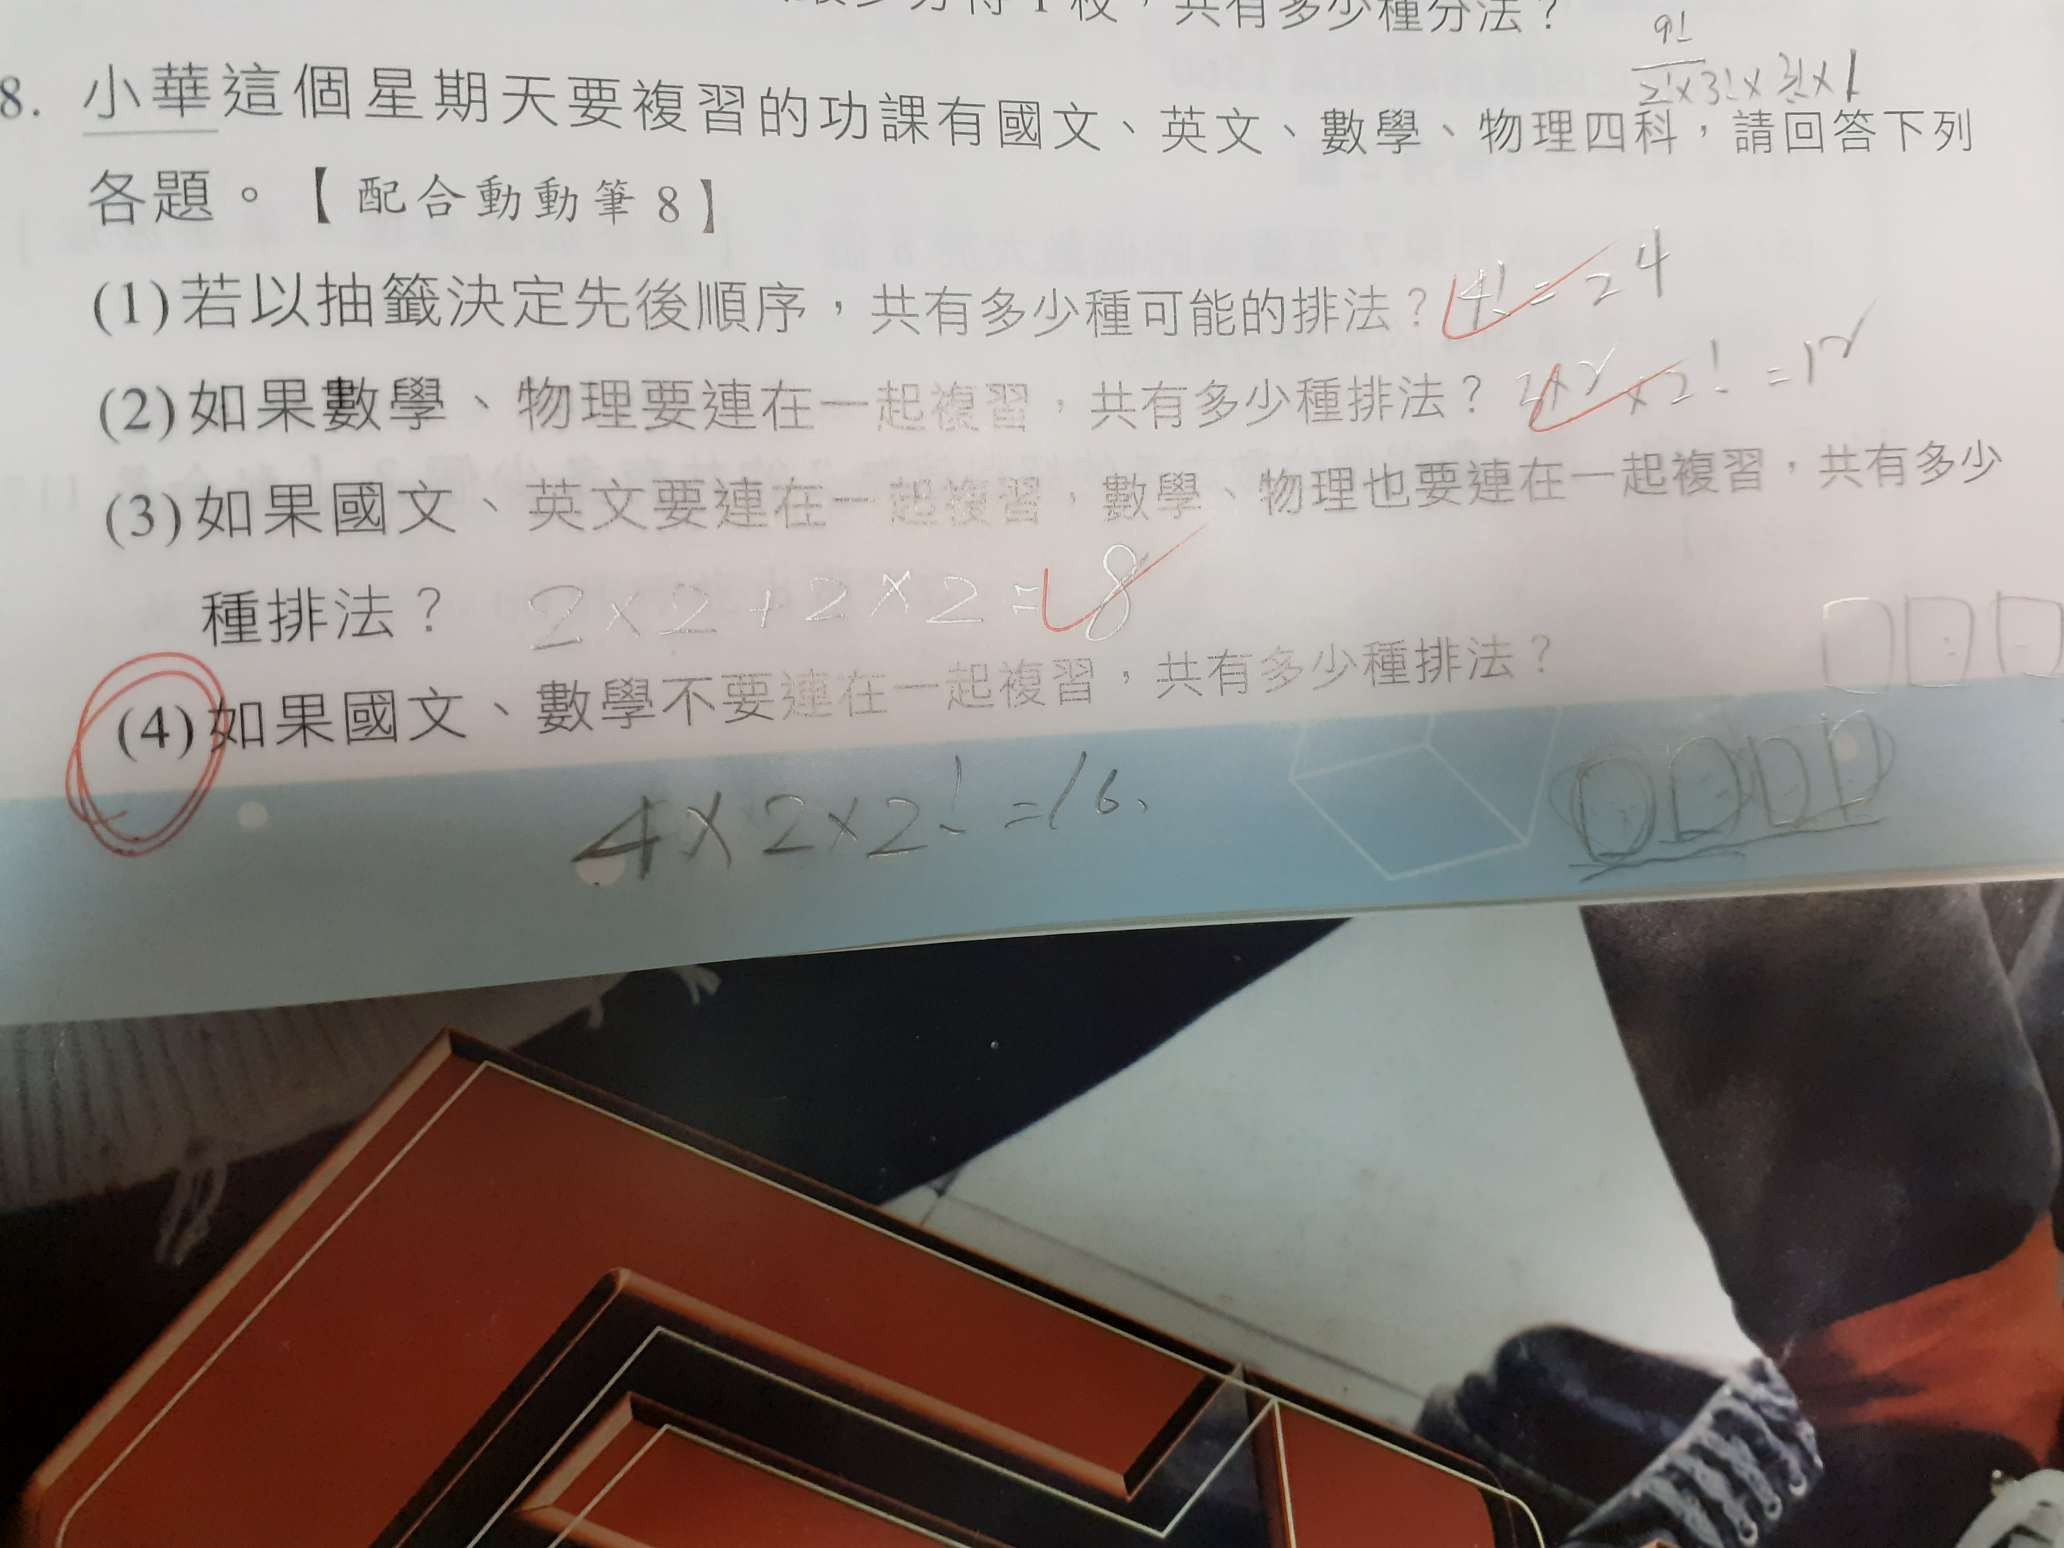 共有多少種分法？
9!
2!×3!×3!×1
8. 小華這個星期天要複習的功課有國文、英文、數學、物理四科，請回答下列
各題。【配合動動筆 8】
(1)若以抽籤決定先後順序，共有多少種可能的排法？ 4! = 24
(2)如果數學、物理要連在一起複習，共有多少種排法？ ×2! = 12
(3)如果國文、英文要連在一起複習，數學、物理也要連在一起複習，共有多少
種排法？ 2×2+2×2=8
(4)如果國文、數學不要連在一起複習，共有多少種排法？
4×2×2! =16